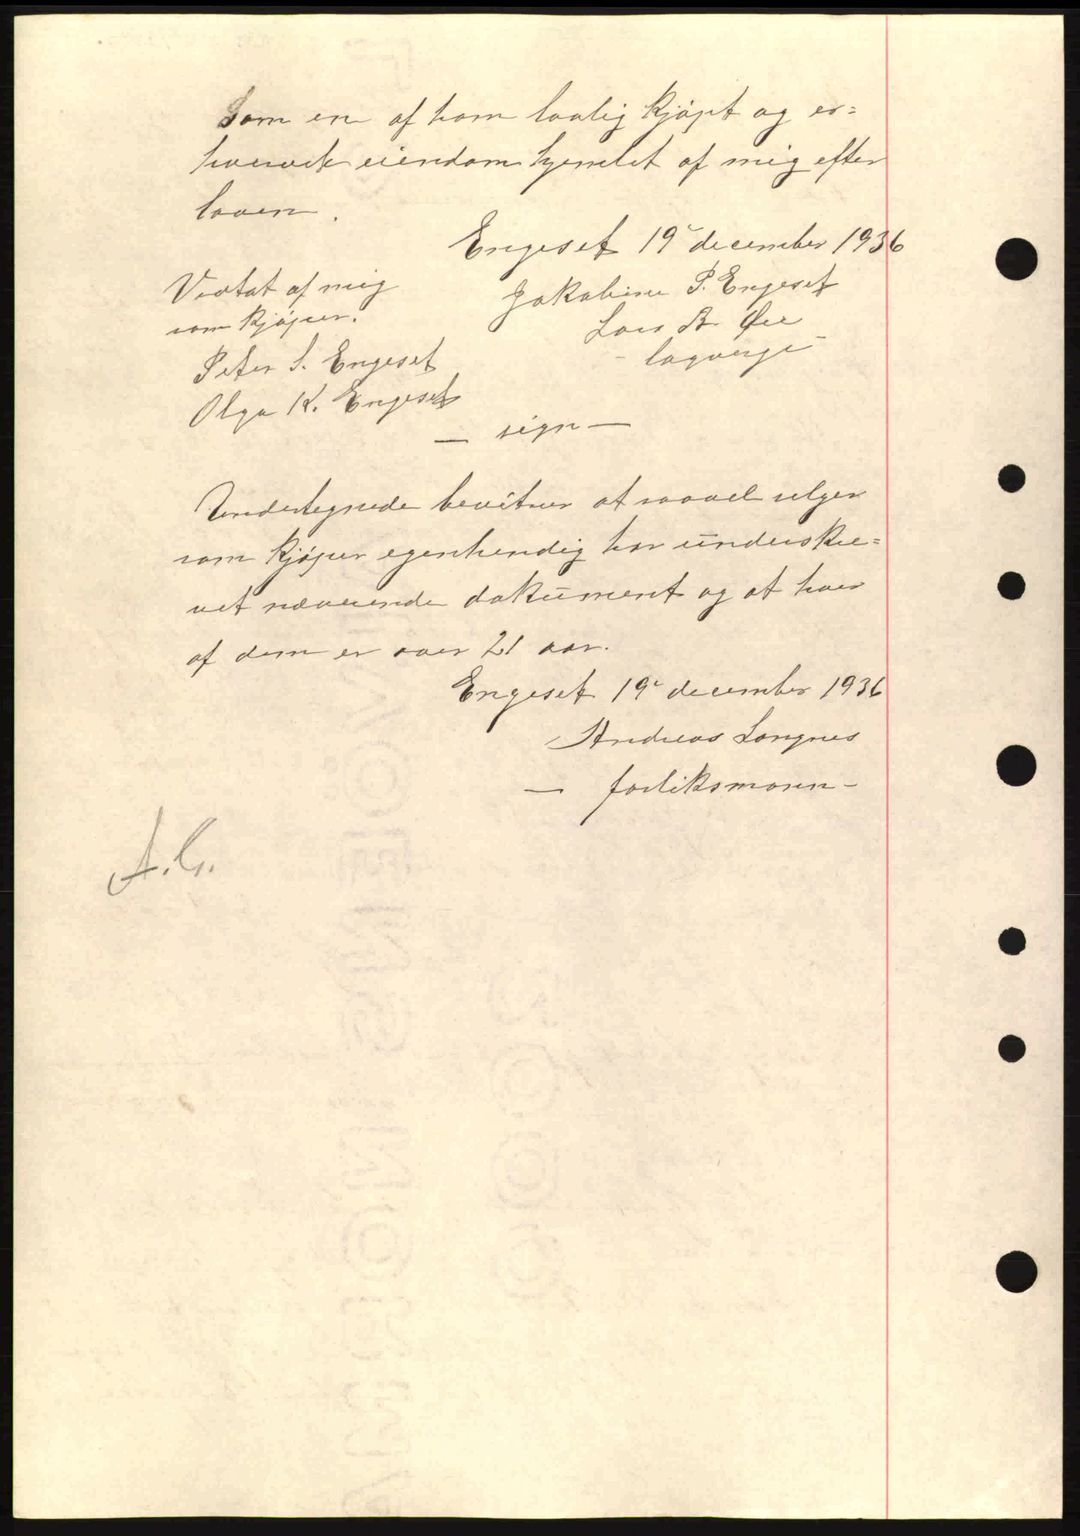 Som en af ham lovlig kjøpt og er=
hvervet eiendom hjemlet af mig efter
loven.
Engeset 19 december 1936
Vedtat af mig
som kjøper.
Jakobine P. Engeset
Lars A. Øie
- lagverge -
Peter S. Engeset
Olga K. Engeset
— sign —
Undertegnede bevitner at saavel selger
som kjøper egenhendig har underskre=
vet nærværende dokument og at hver
af dem er over 21 aar.
Engeset 19 december 1936
Andreas Longnes
— forliksmann -
A.G.